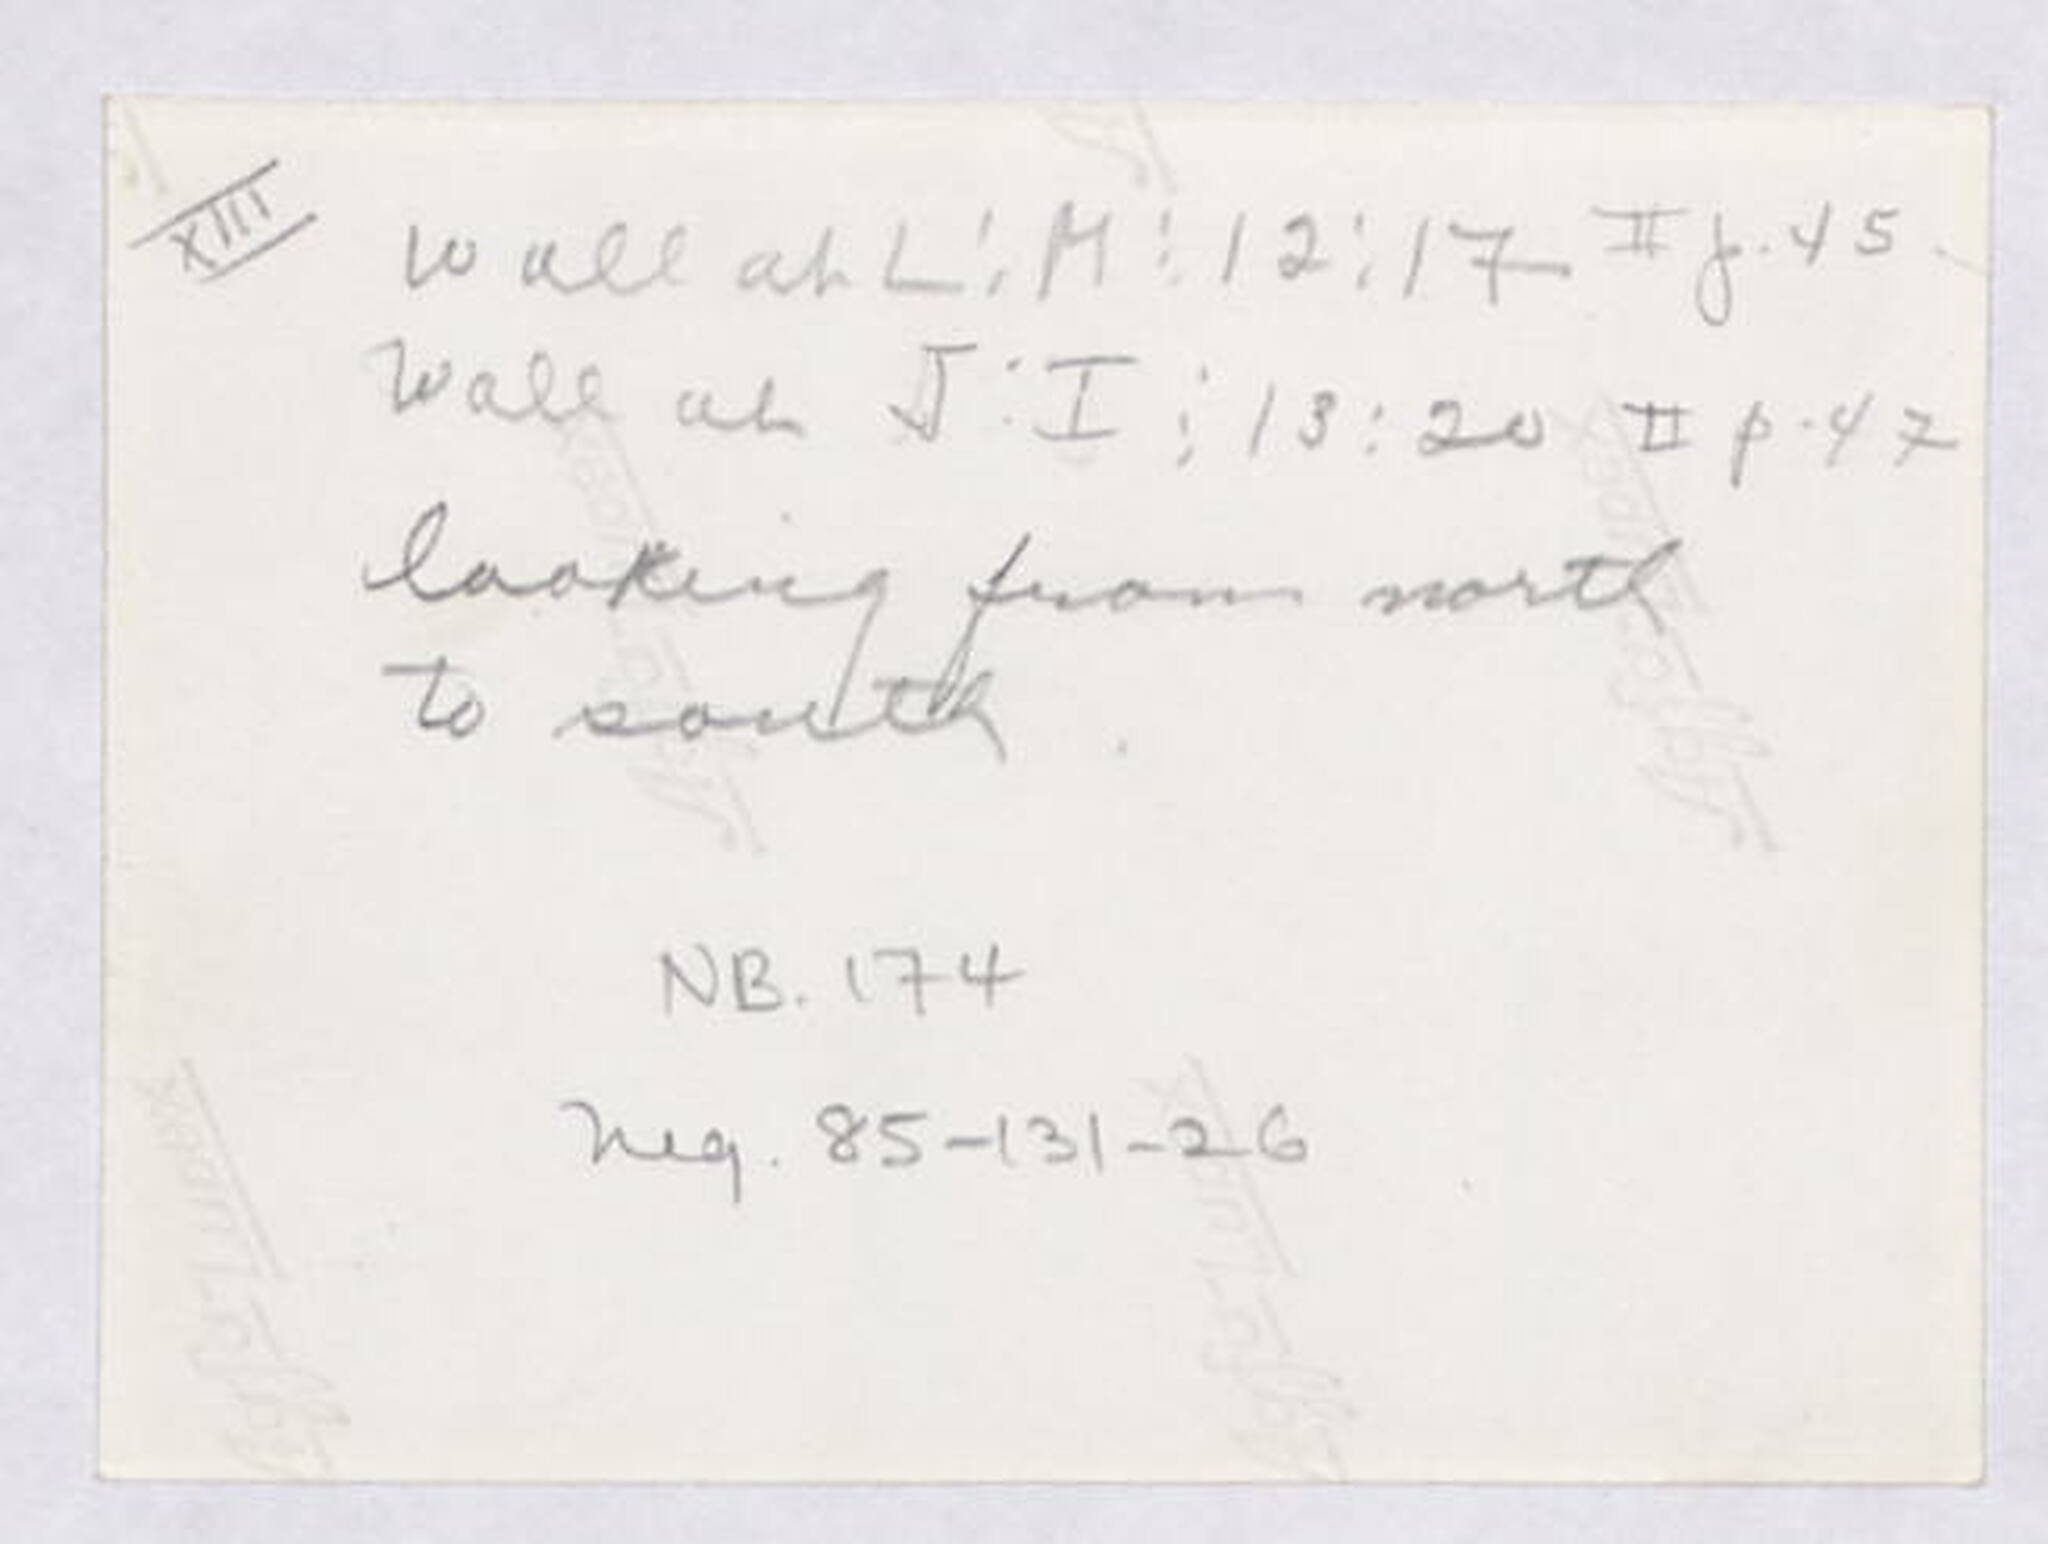 XIII
Wall at L:M:12:17 II p.45
Wall at J:I:13:20 II p.47
looking from north
to south.
NB. 174
Neg. 85-131-26